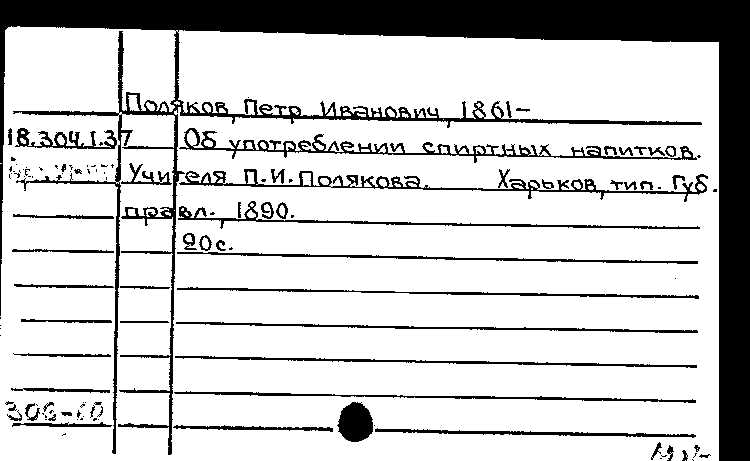 Поляков, Петр Иванович, 1861-
18.304.1.37 Об употреблении спиртных напитков.
Учителя П.И.Полякова. Харьков, тип. Губ.
правл., 1890.
20с.
306-60